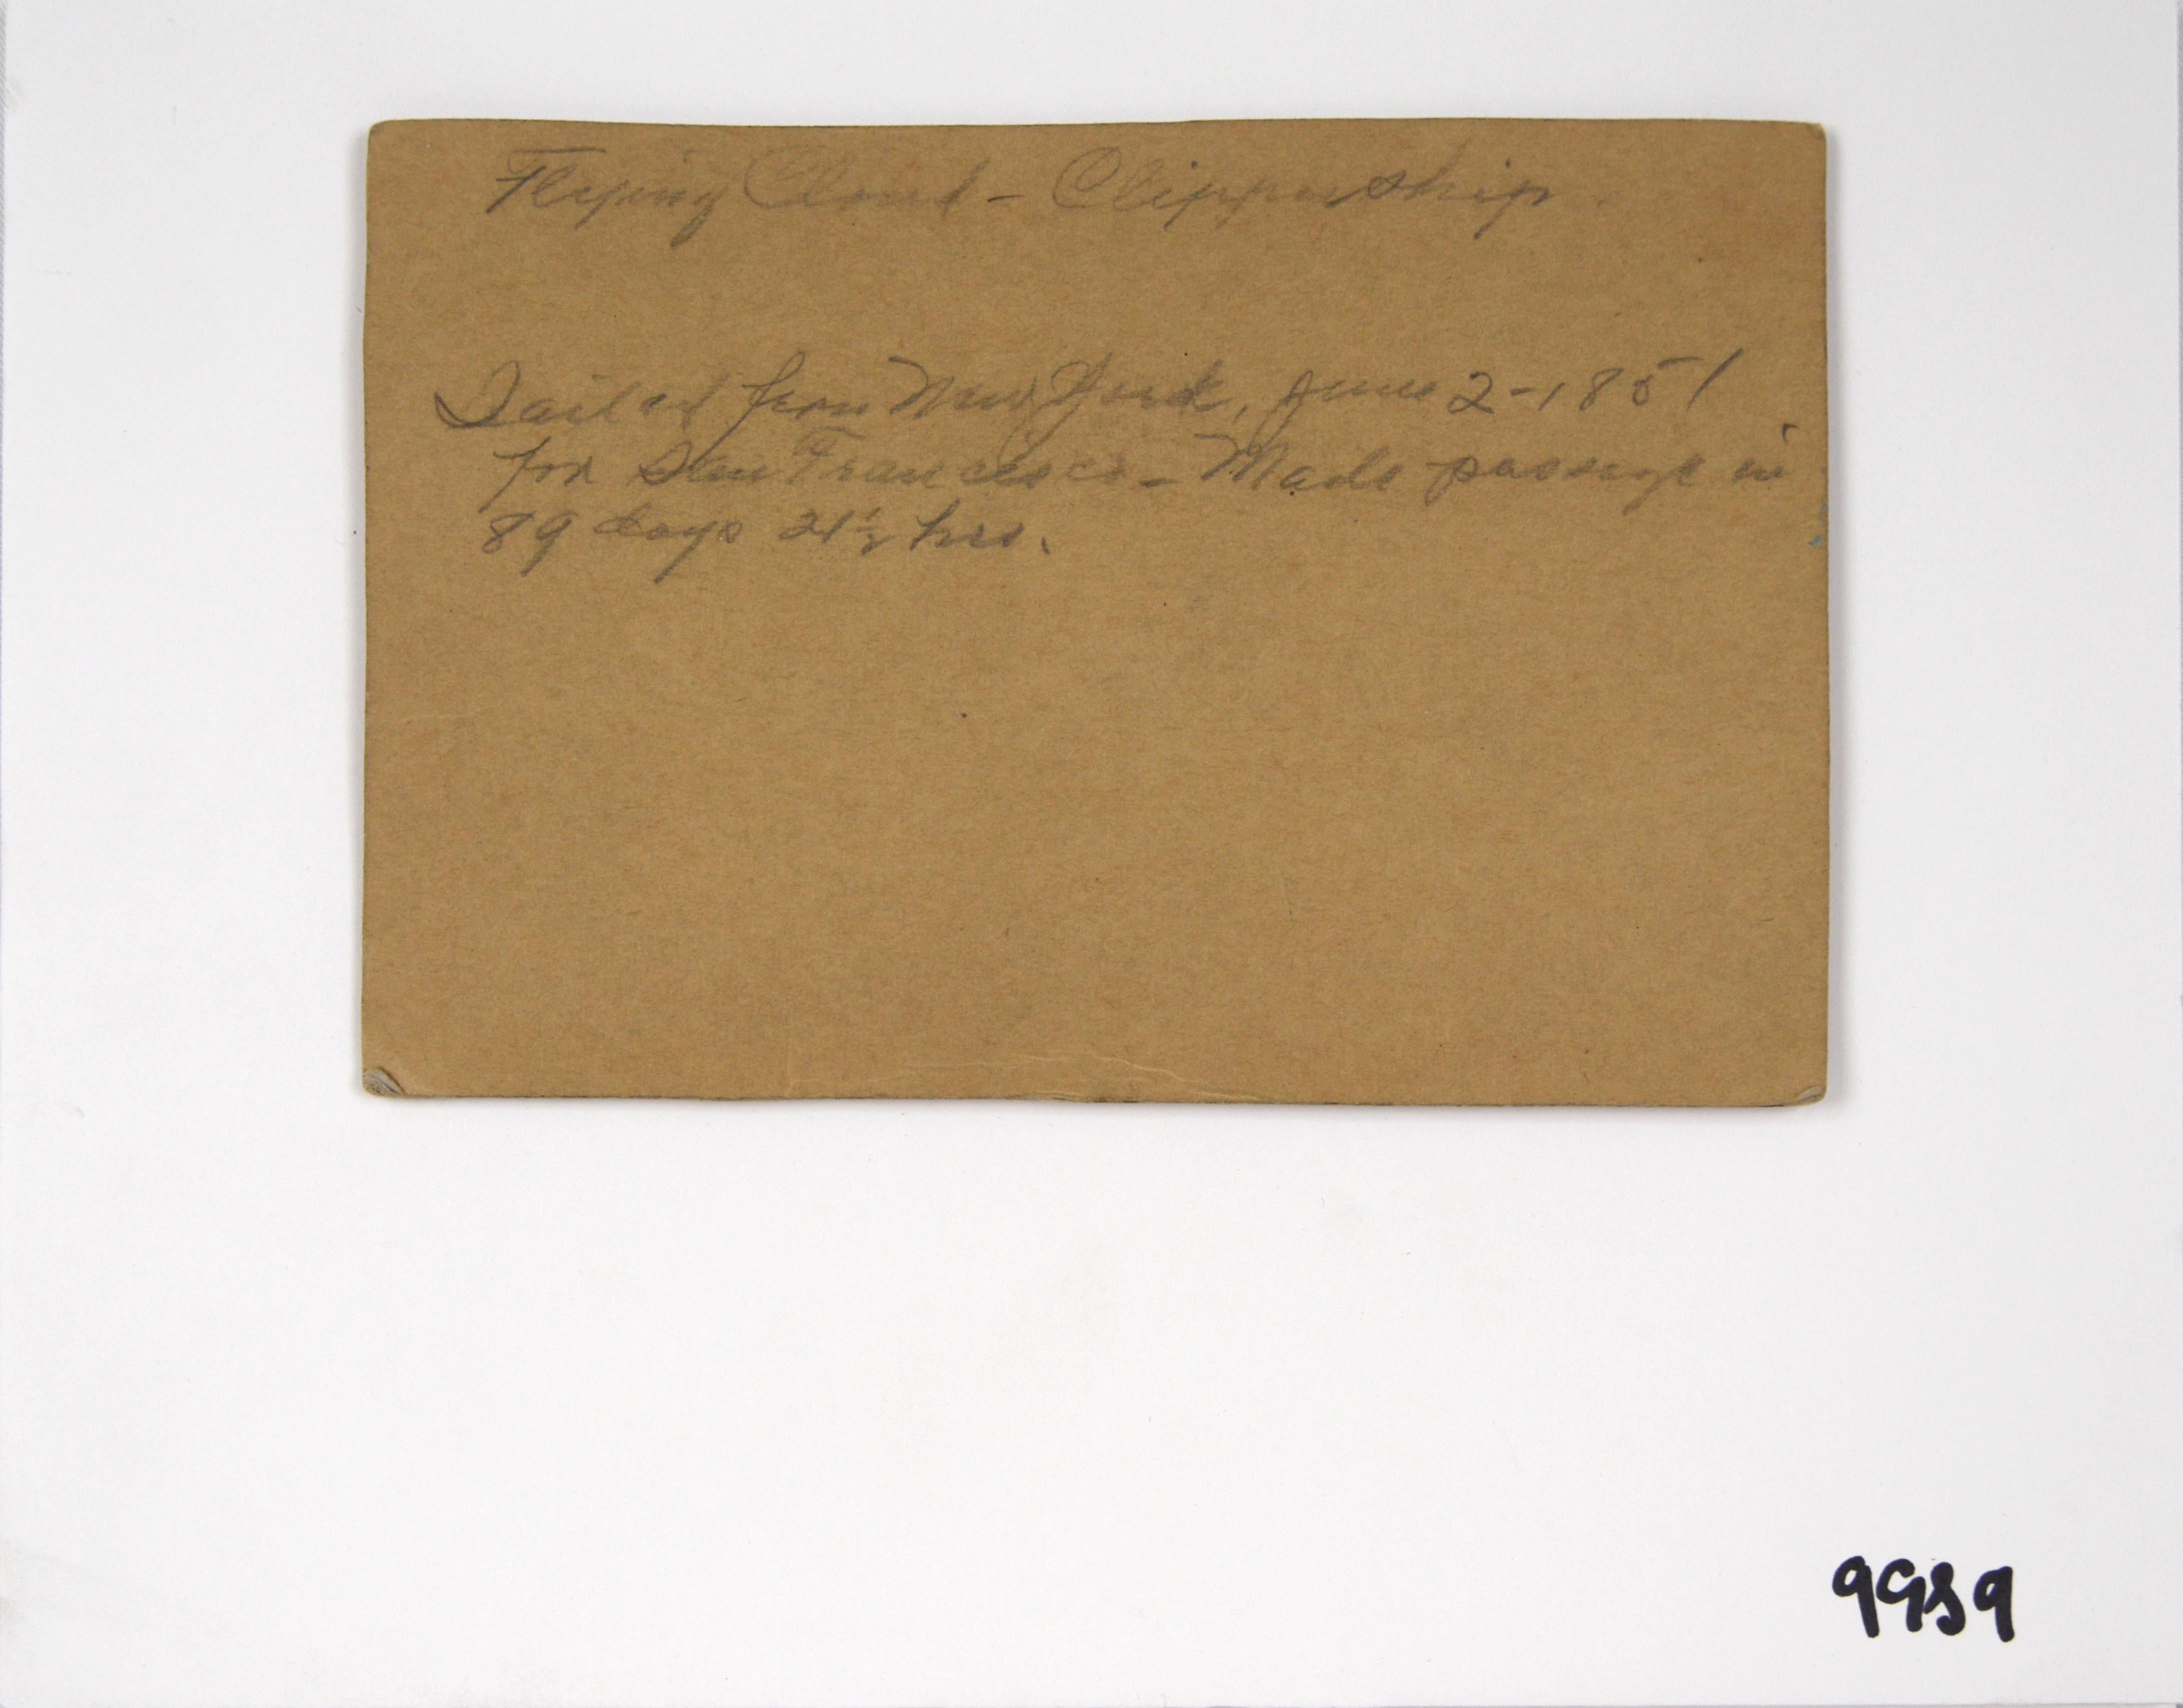 Flying Cloud - Clippership.
Sailed from New York, June 2-1851
for San Francisco - Made passage in
89 days 21½ hrs.
9989